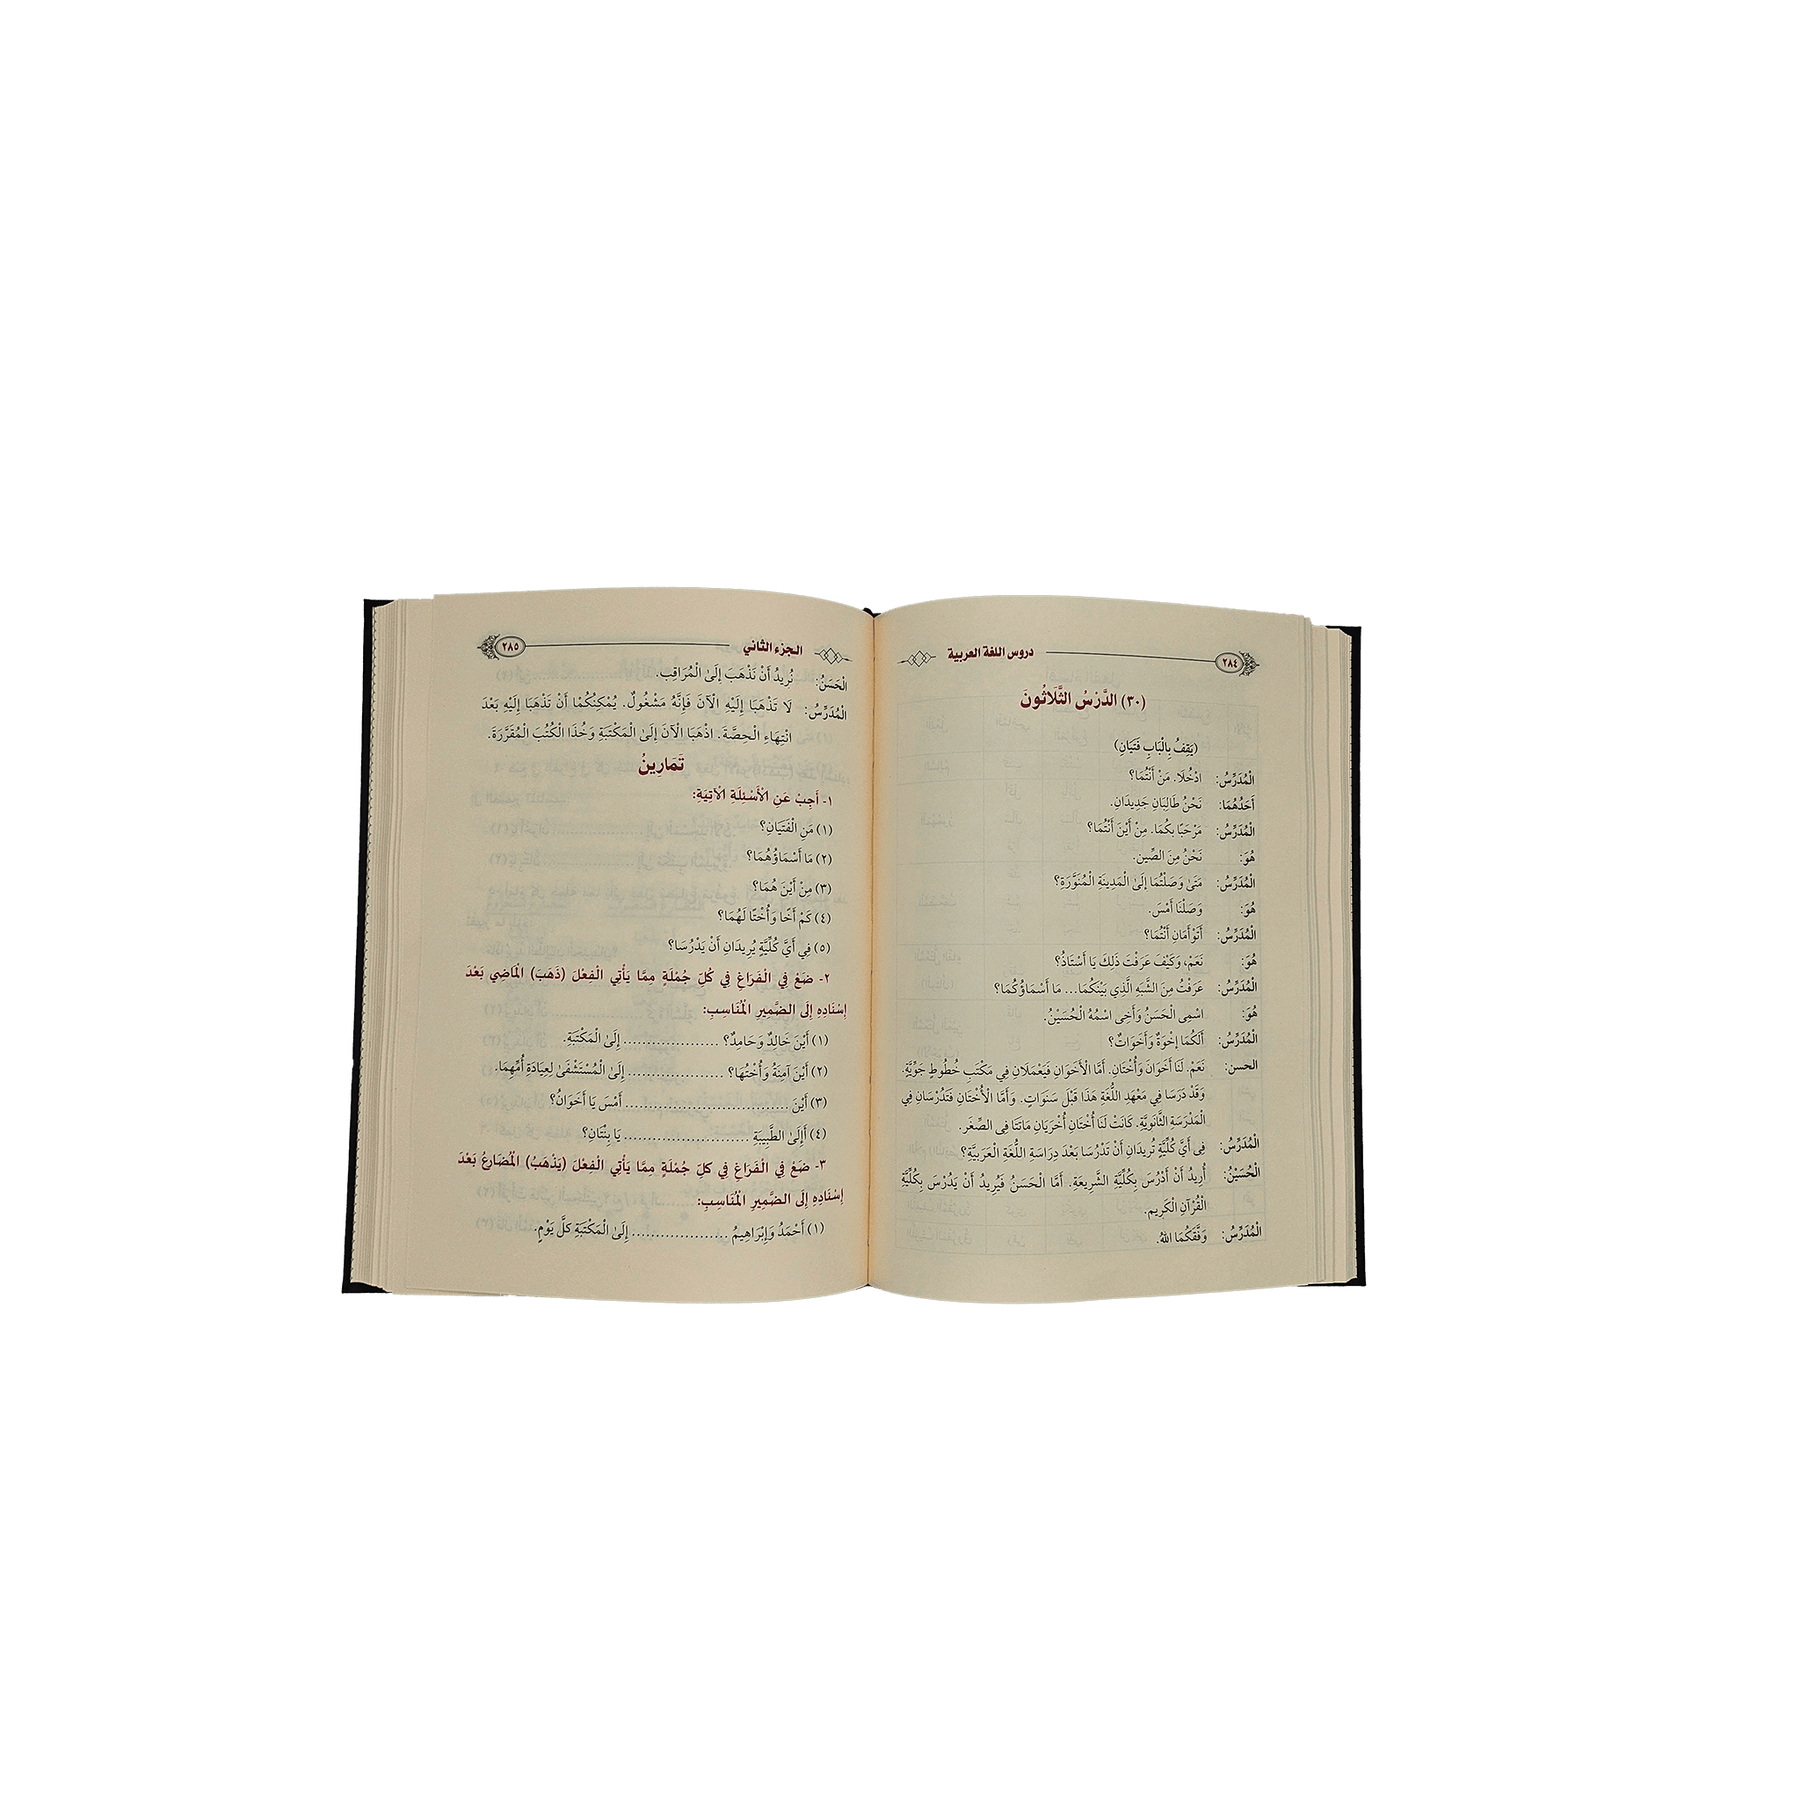 دروس اللغة العربية ٢٨٤
(٣٠) الدَّرْسُ الثَّلَاثُونَ
(يَقِفُ بِالْبَابِ فَتَيَانِ)
الْمُدَرِّسُ: ادْخُلَا. مَنْ أَنْتُمَا؟
أَحَدُهُمَا: نَحْنُ طَالِبَانِ جَدِيدَانِ.
الْمُدَرِّسُ: مَرْحَبًا بِكُمَا. مِنْ أَيْنَ أَنْتُمَا؟
هُوَ: نَحْنُ مِنَ الصِّينِ.
الْمُدَرِّسُ: مَتَىٰ وَصَلْتُمَا إِلَىٰ الْمَدِينَةِ الْمُنَوَّرَةِ؟
هُوَ: وَصَلْنَا أَمْسَ.
الْمُدَرِّسُ: أَتَوْأَمَانِ أَنْتُمَا؟
هُوَ: نَعَمْ، وَكَيْفَ عَرَفْتَ ذَلِكَ يَا أُسْتَاذُ؟
الْمُدَرِّسُ: عَرَفْتُ مِنَ الشَّبَهِ الَّذِي بَيْنَكُمَا... مَا أَسْمَاؤُكُمَا؟
هُوَ: اسْمِى الْحَسَنُ وَأَخِى اسْمُهُ الْحُسَيْنُ.
الْمُدَرِّسُ: أَلَكُمَا إِخْوَةٌ وَأَخَوَاتٌ؟
الحسن: نَعَمْ. لَنَا أَخَوَانِ وَأُخْتَانِ. أَمَّا الْأَخَوَانِ فَيَعْمَلَانِ فِي مَكْتَبِ خُطُوطٍ جَوِّيَّةٍ.
وَقَدْ دَرَسَا فِي مَعْهَدِ اللُّغَةِ هَذَا قَبْلَ سَنَوَاتٍ. وَأَمَّا الْأُخْتَانِ فَتَدْرُسَانِ فِي
الْمَدْرَسَةِ الثَّانَوِيَّةِ. كَانَتْ لَنَا أُخْتَانِ أُخْرَيَانِ مَاتَتَا فِى الصِّغَرِ.
الْمُدَرِّسُ: فِى أَيِّ كُلِّيَّةٍ تُرِيدَانِ أَنْ تَدْرُسَا بَعْدَ دِرَاسَةِ اللُّغَةِ الْعَرَبِيَّةِ؟
الْحُسَيْنُ: أُرِيدُ أَنْ أَدْرُسَ بِكُلِّيَّةِ الشَّرِيعَةِ. أَمَّا الْحَسَنُ فَيُرِيدُ أَنْ يَدْرُسَ بِكُلِّيَّةِ
الْقُرْآنِ الْكَرِيمِ.
الْمُدَرِّسُ: وَفَّقَكُمَا اللهُ.
الجزء الثاني ٢٨٥
الْحَسَنُ: نُرِيدُ أَنْ نَذْهَبَ إِلَىٰ الْمُرَاقِبِ.
الْمُدَرِّسُ: لَا تَذْهَبَا إِلَيْهِ الْآنَ فَإِنَّهُ مَشْغُولٌ. يُمْكِنُكُمْا أَنْ تَذْهَبَا إِلَيْهِ بَعْدَ
انْتِهَاءِ الْحِصَّةِ. اذْهَبَا الْآنَ إِلَىٰ الْمَكْتَبَةِ وَخُذَا الْكُتُبَ الْمُقَرَّرَةَ.
تَمَارِينُ
١- أَجِبْ عَنِ الْأَسْئِلَةِ الْآتِيَةِ:
(١) مَنِ الْفَتَيَانِ؟
(٢) مَا أَسْمَاؤُهُمَا؟
(٣) مِنْ أَيْنَ هُمَا؟
(٤) كَمْ أَخًا وَأُخْتًا لَهُمَا؟
(٥) فِي أَيِّ كُلِّيَّةٍ يُرِيدَانِ أَنْ يَدْرُسَا؟
٢- ضَعْ فِي الْفَرَاغِ فِي كُلِّ جُمْلَةٍ مِمَّا يَأْتِي الْفِعْلَ (ذَهَبَ) الْمَاضِي بَعْدَ
إِسْنَادِهِ إِلَى الضَّمِيرِ الْمُنَاسِبِ:
(١) أَيْنَ خَالِدٌ وَحَامِدٌ؟ .................... إِلَىٰ الْمَكْتَبَةِ.
(٢) أَيْنَ آمِنَةُ وَأُخْتُهَا؟ .................... إِلَىٰ الْمُسْتَشْفَىٰ لِعِيَادَةِ أُمِّهِمَا.
(٣) أَيْنَ .................................. أَمْسَ يَا أَخَوَانُ؟
(٤) أَإِلَىٰ الطَّبِيبَةِ .......................... يَا بِنْتَانِ؟
٣- ضَعْ فِي الْفَرَاغِ فِي كلِّ جُمْلَةٍ مِمَّا يَأْتِي الْفِعْلَ (يَذْهَبُ) الْمُضَارِعُ بَعْدَ
إِسْنَادِهِ إِلَى الضَّمِيرِ الْمُنَاسِبِ:
(١) أَحْمَدُ وَإِبْرَاهِيمُ .................... إِلَىٰ الْمَكْتَبَةِ كلَّ يَوْمٍ.